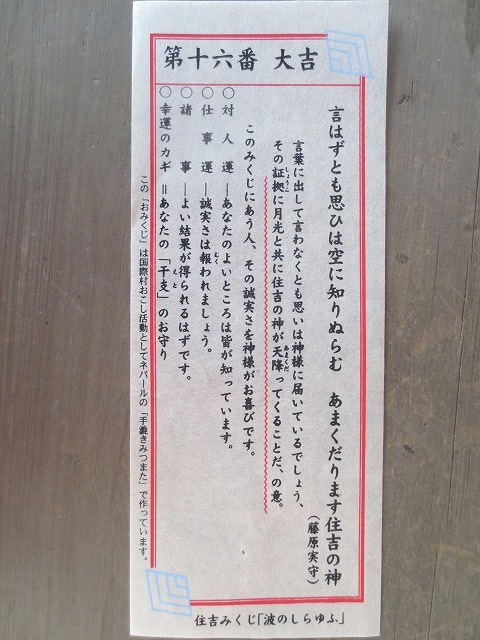 第十六番 大吉
言はずとも思ひは空に知りぬらむ あまくだります住吉の神
(藤原実守)
言葉に出して言わなくとも思いは神様に届いているでしょう、
その証拠に月光と共に住吉の神が天降ってくることだ、の意。
しょうこ
あまくだ
このみくじにあう人、その誠実さを神様がお喜びです。
○対人運―あなたのよいところは皆が知っています。
○仕事運―誠実さは報われましょう。
むく
○諸事―よい結果が得られるはずです。
○幸運のカギ=あなたの「干支」のお守り
えと
この「おみくじ」は国際村おこし活動としてネパールの「手漉きみつまた」で作っています。
住吉みくじ「波のしらゆふ」